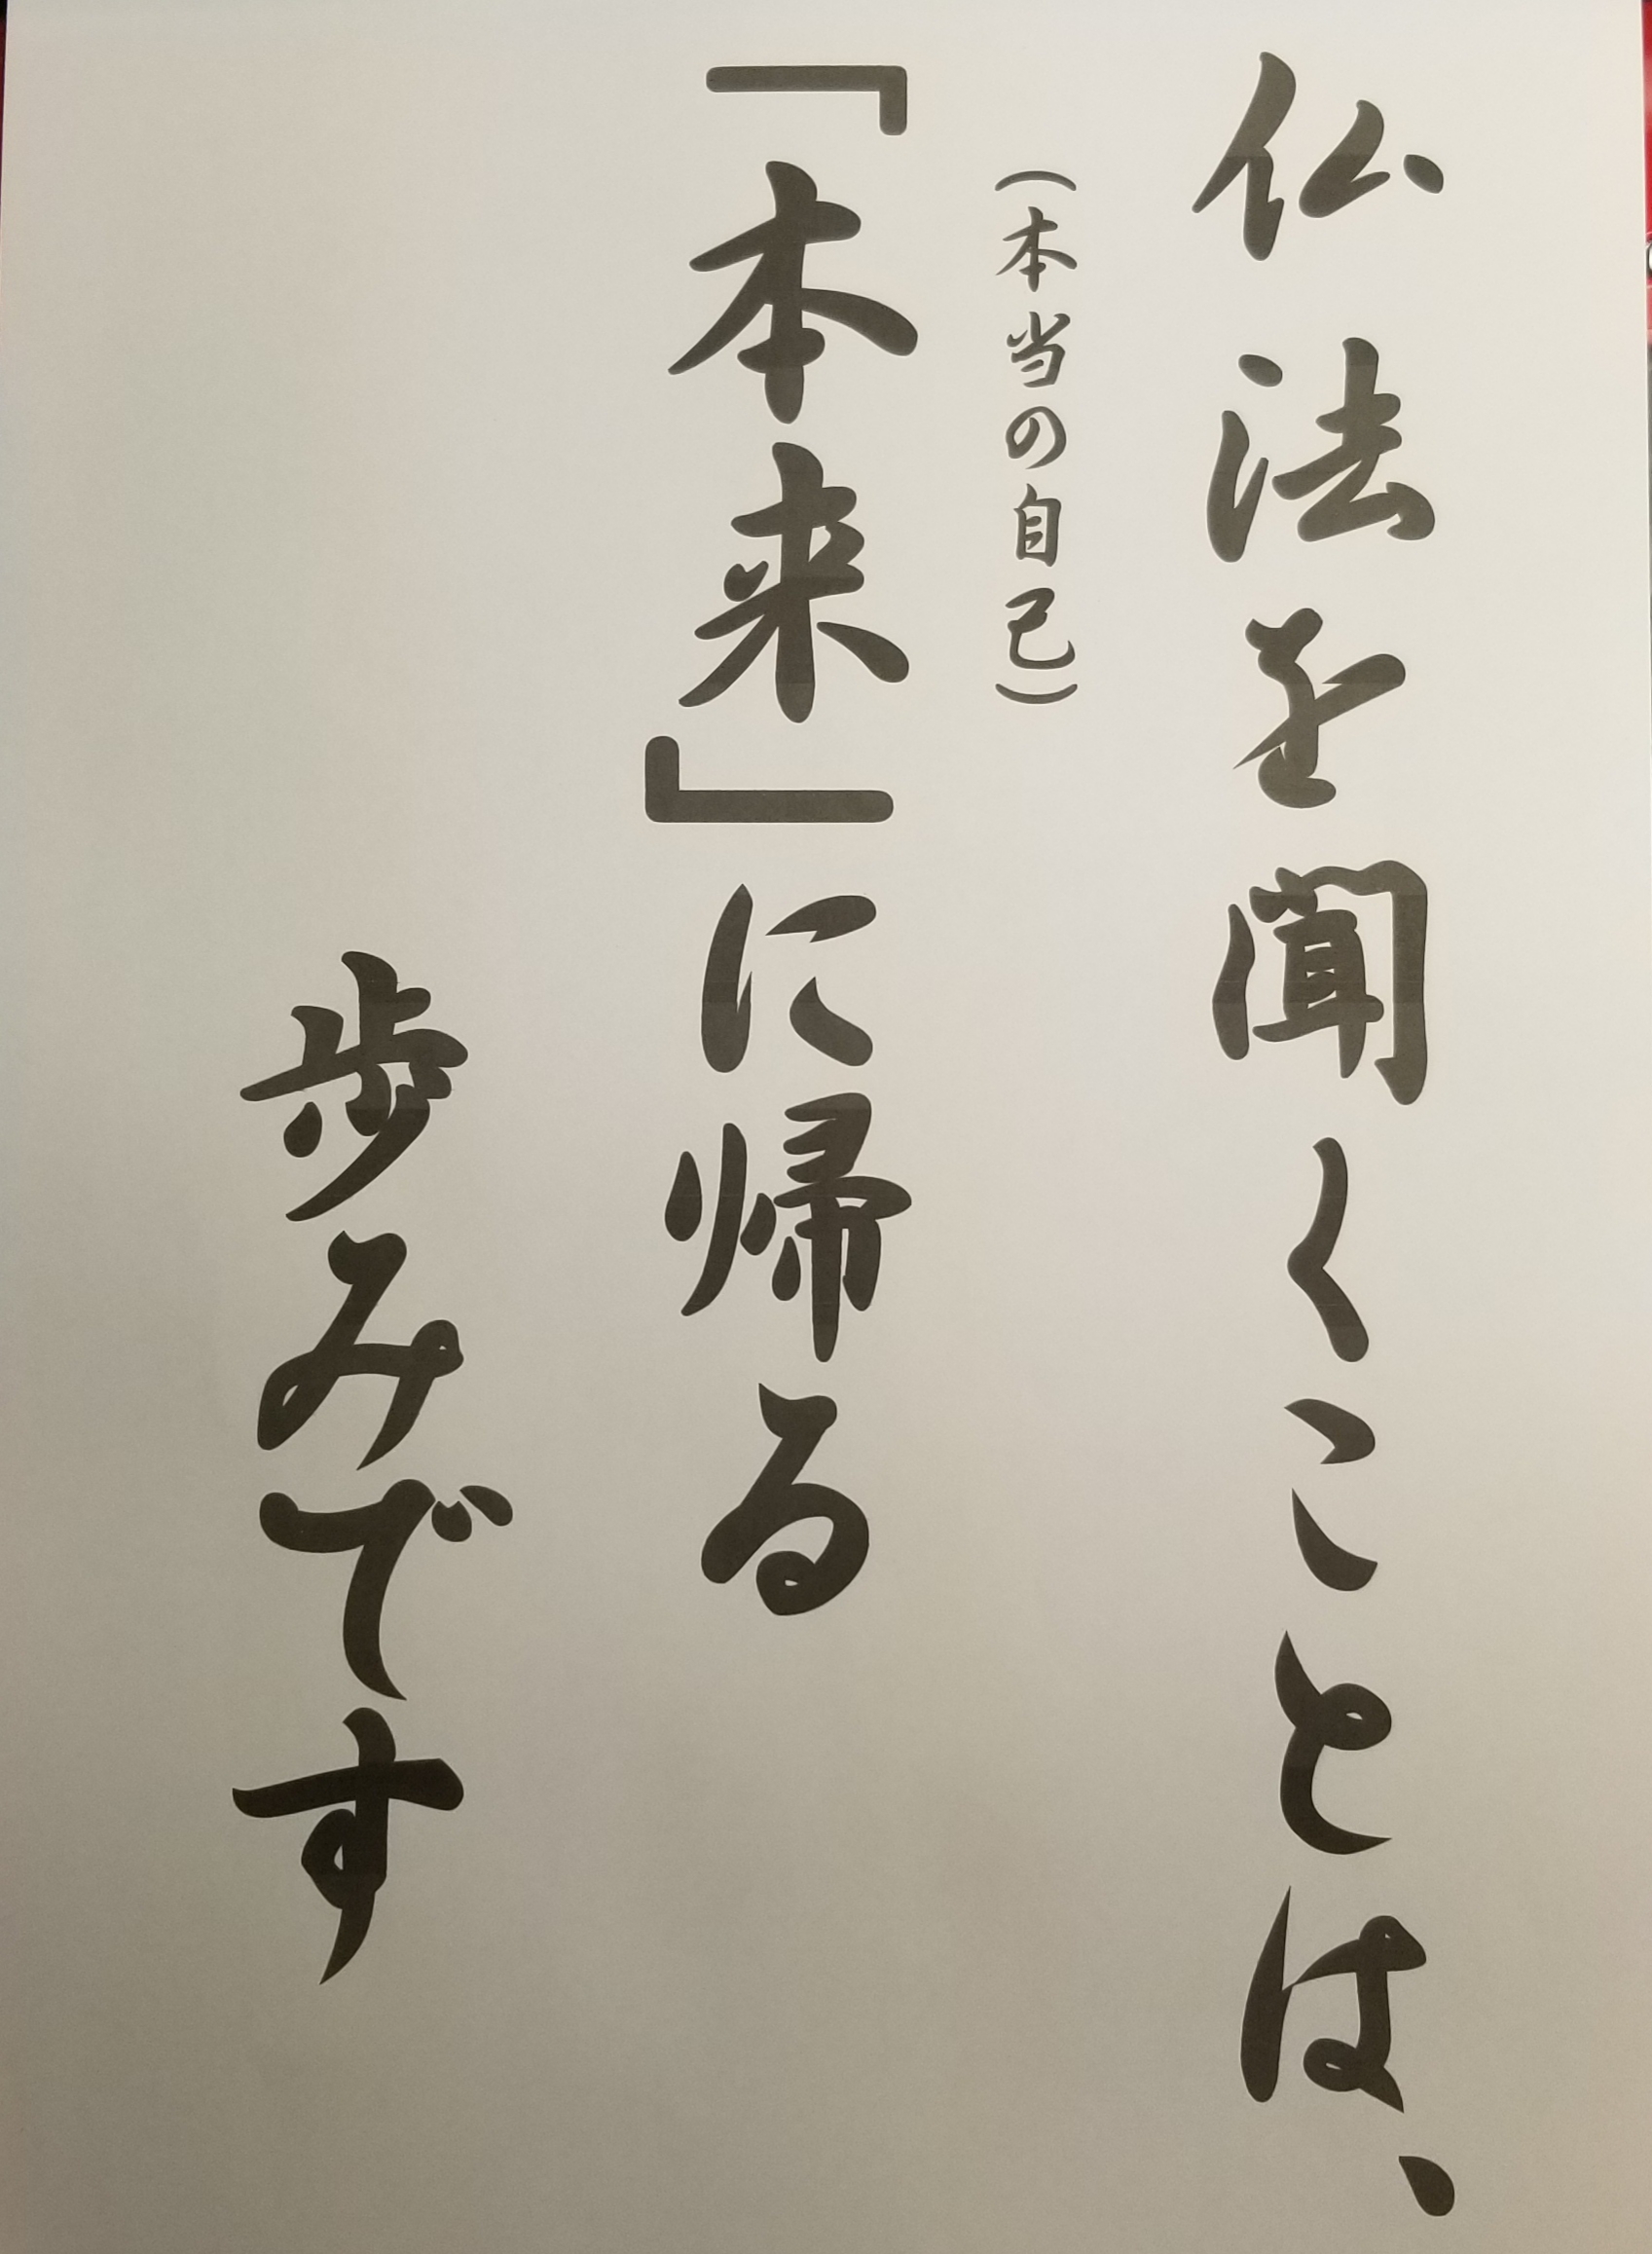 仏法を聞くことは、
（本当の自己）
「本来」に帰る
歩みです